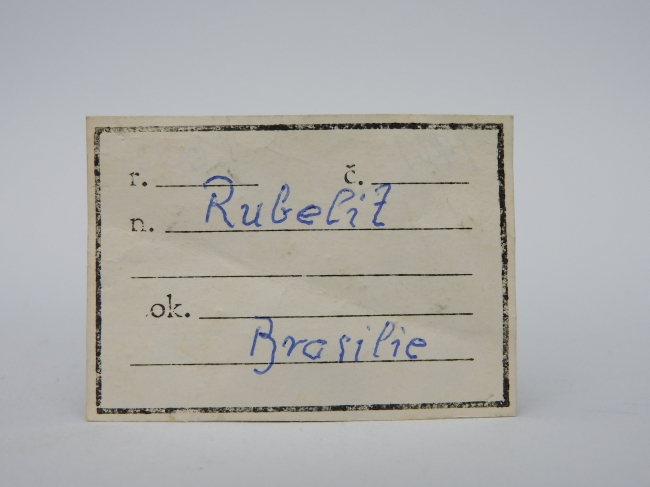 r. č.
n. Rubelit
ok.
Brasilie